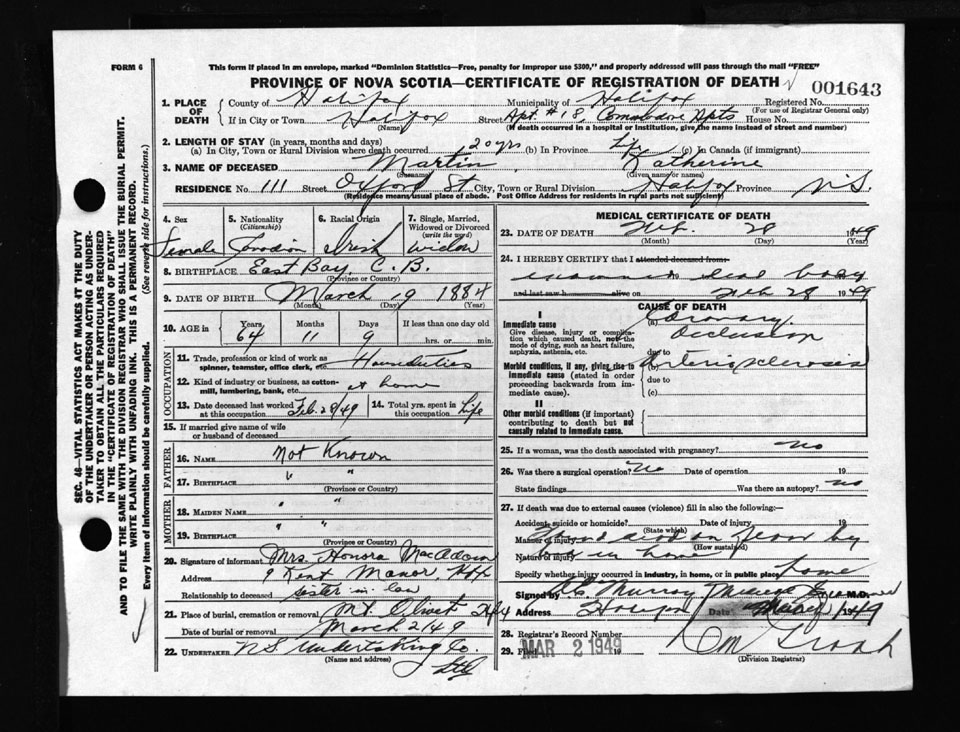 FORM 6
This form if placed in an envelope, marked "Dominion Statistics—Free, penalty for improper use $300," and properly addressed will pass through the mail "FREE"
PROVINCE OF NOVA SCOTIA—CERTIFICATE OF REGISTRATION OF DEATH
001643
1. PLACE OF DEATH
County of Halifax Municipality of Halifax Registered No.
(For use of Registrar General only)
If in City or Town Halifax Street Apt. #18, Commodore Apts House No.
(Name) (If death occurred in a hospital or institution, give the name instead of street and number)
2. LENGTH OF STAY (in years, months and days)
(a) In City, Town or Rural Division where death occurred 20 yrs (b) In Province Life (c) In Canada (if immigrant)
3. NAME OF DECEASED Martin, Katherine
(Surname) (Given name or names)
RESIDENCE No. 111 Street Oxford St City, Town or Rural Division Halifax Province N.S.
(Residence means usual place of abode. Post Office Address for residents in rural parts not sufficient)
4. Sex Female
5. Nationality (Citizenship) Canadian
6. Racial Origin Irish
7. Single, Married, Widowed or Divorced (write the word) Widow
8. BIRTHPLACE East Bay, C.B.
(Province or Country)
9. DATE OF BIRTH March 19 1884
(Month) (Day) (Year)
10. AGE in Years Months Days If less than one day old
64 11 9 hrs. or min.
OCCUPATION
11. Trade, profession or kind of work as spinner, teamster, office clerk, etc. Houseduties
12. Kind of industry or business, as cotton-mill, lumbering, bank, etc. at home
13. Date deceased last worked at this occupation Feb. 28/49
14. Total yrs. spent in this occupation Life
15. If married give name of wife or husband of deceased
FATHER
16. NAME Not Known
17. BIRTHPLACE " "
(Province or Country)
MOTHER
18. MAIDEN NAME " "
19. BIRTHPLACE " "
(Province or Country)
20. Signature of informant Mrs. Honora MacAdam
Address 9 Kent Manor, Hfx
Relationship to deceased sister in law
21. Place of burial, cremation or removal Mt. Olivet Hfx
Date of burial or removal March 2/49
22. UNDERTAKER N.S. Undertaking Co.
(Name and address)
MEDICAL CERTIFICATE OF DEATH
23. DATE OF DEATH Feb. 28 1949
(Month) (Day) (Year)
24. I HEREBY CERTIFY that I attended deceased from
examined dead body
and last saw h alive on Feb 28 1949
CAUSE OF DEATH
I
Immediate cause
Give disease, injury or complication which caused death, not the mode of dying, such as heart failure, asphyxia, asthenia, etc.
(a) Coronary
Occlusion
due to
Morbid conditions, if any, giving rise to immediate cause (stated in order proceeding backwards from immediate cause).
Arteriosclerosis
due to
(c)
II
Other morbid conditions (if important) contributing to death but not causally related to immediate cause.
25. If a woman, was the death associated with pregnancy? No
26. Was there a surgical operation? No Date of operation 19
State findings Was there an autopsy? No
27. If death was due to external causes (violence) fill in also the following:
Accident, suicide or homicide? Date of injury 19
(State which)
Manner of injury Found dead on floor by
(How sustained)
Nature of injury bed in home
Specify whether injury occurred in industry, in home, or in public place home
Signed by Murray Medical Examiner M.D.
Address Halifax Date 1949
28. Registrar's Record Number
29. Filed MAR 2 1949 19
(Division Registrar)
SEC. 48—VITAL STATISTICS ACT MAKES IT THE DUTY
OF THE UNDERTAKER OR PERSON ACTING AS UNDER-
TAKER TO OBTAIN ALL THE PARTICULARS REQUIRED
IN THE "CERTIFICATE OF REGISTRATION OF DEATH"
AND TO FILE THE SAME WITH THE DIVISION REGISTRAR WHO SHALL ISSUE THE BURIAL PERMIT.
WRITE PLAINLY WITH UNFADING INK. THIS IS A PERMANENT RECORD.
Every item of Information should be carefully supplied. (See reverse side for instructions.)